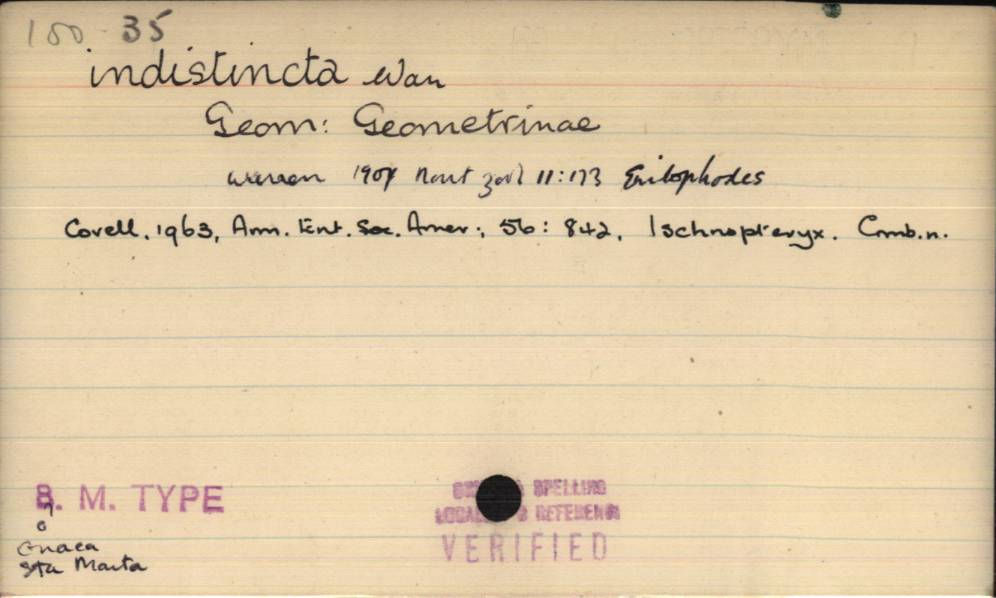 150 35
indistincta Warr
Geom: Geometrinae
Warren 1904 Novit Zool 11:173 Eritophodes
Covell, 1963, Ann. Ent. Soc. Amer., 56: 842, Ischnopteryx. Comb.n.
B. M. TYPE
SPELLING
REFERENCE
VERIFIED
Onaca
Sta Marta